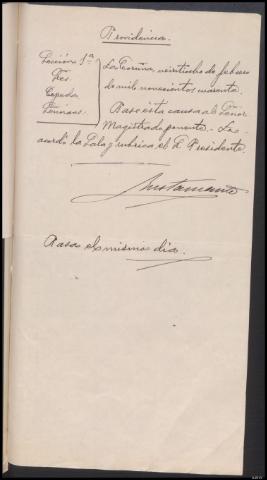 Providencia.
Sección 1ª
Sres.
Cepeda
La Coruña, veintiocho de febrero
de mil novecientos cuarenta.
Pase esta causa al Señor
Magistrado ponente. - Lo
acordó la Sala y rubrica el Sr. Presidente.
Bustamante
Pasa el mismo día.